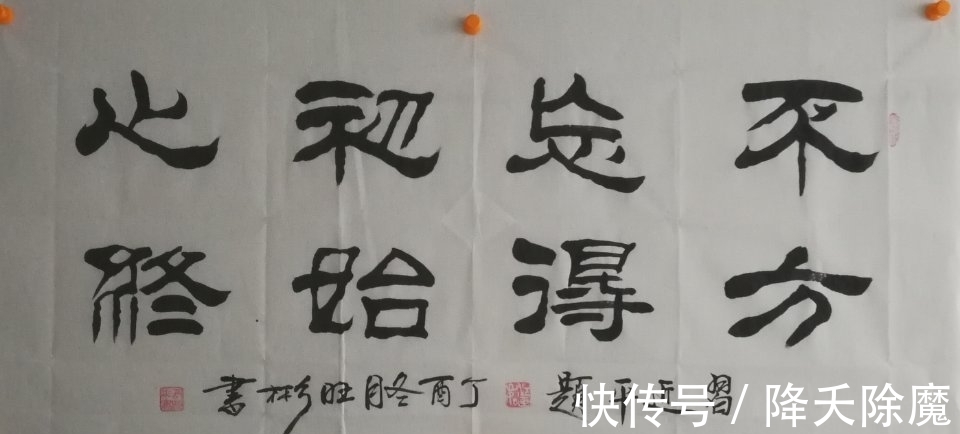 不忘初心
方得始終
習近平題 丁酉冬月旺彬書
快传号 / 降夭除魔